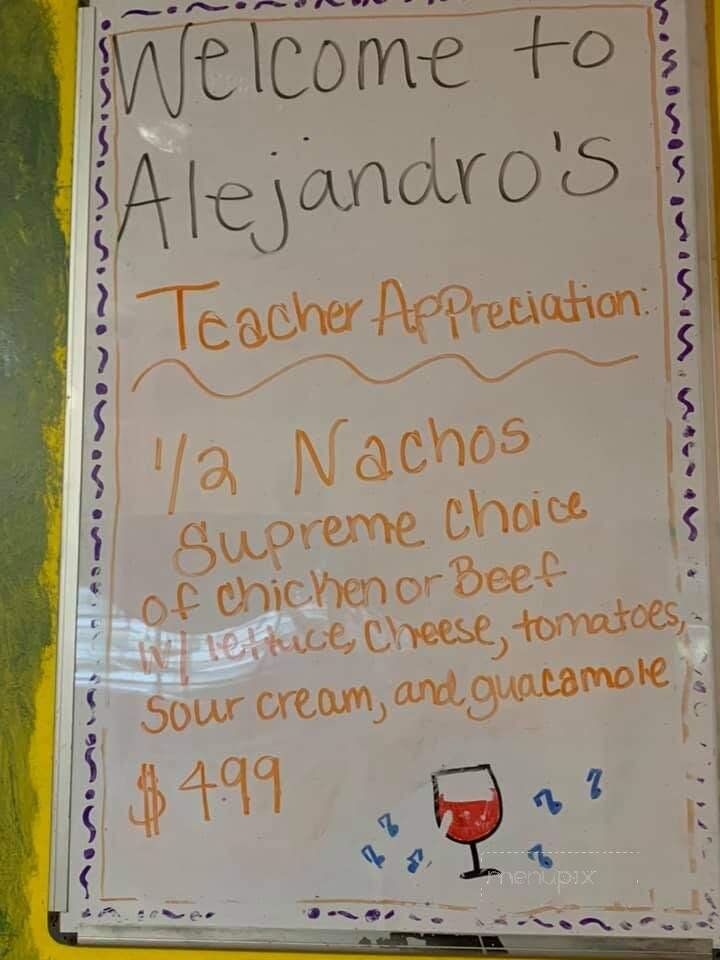 Welcome to
Alejandro's
Teacher Appreciation:
1/2 Nachos
Supreme Choice
of Chicken or Beef
w/ lettuce, Cheese, tomatoes,
Sour cream, and guacamole
$4.99
menupix